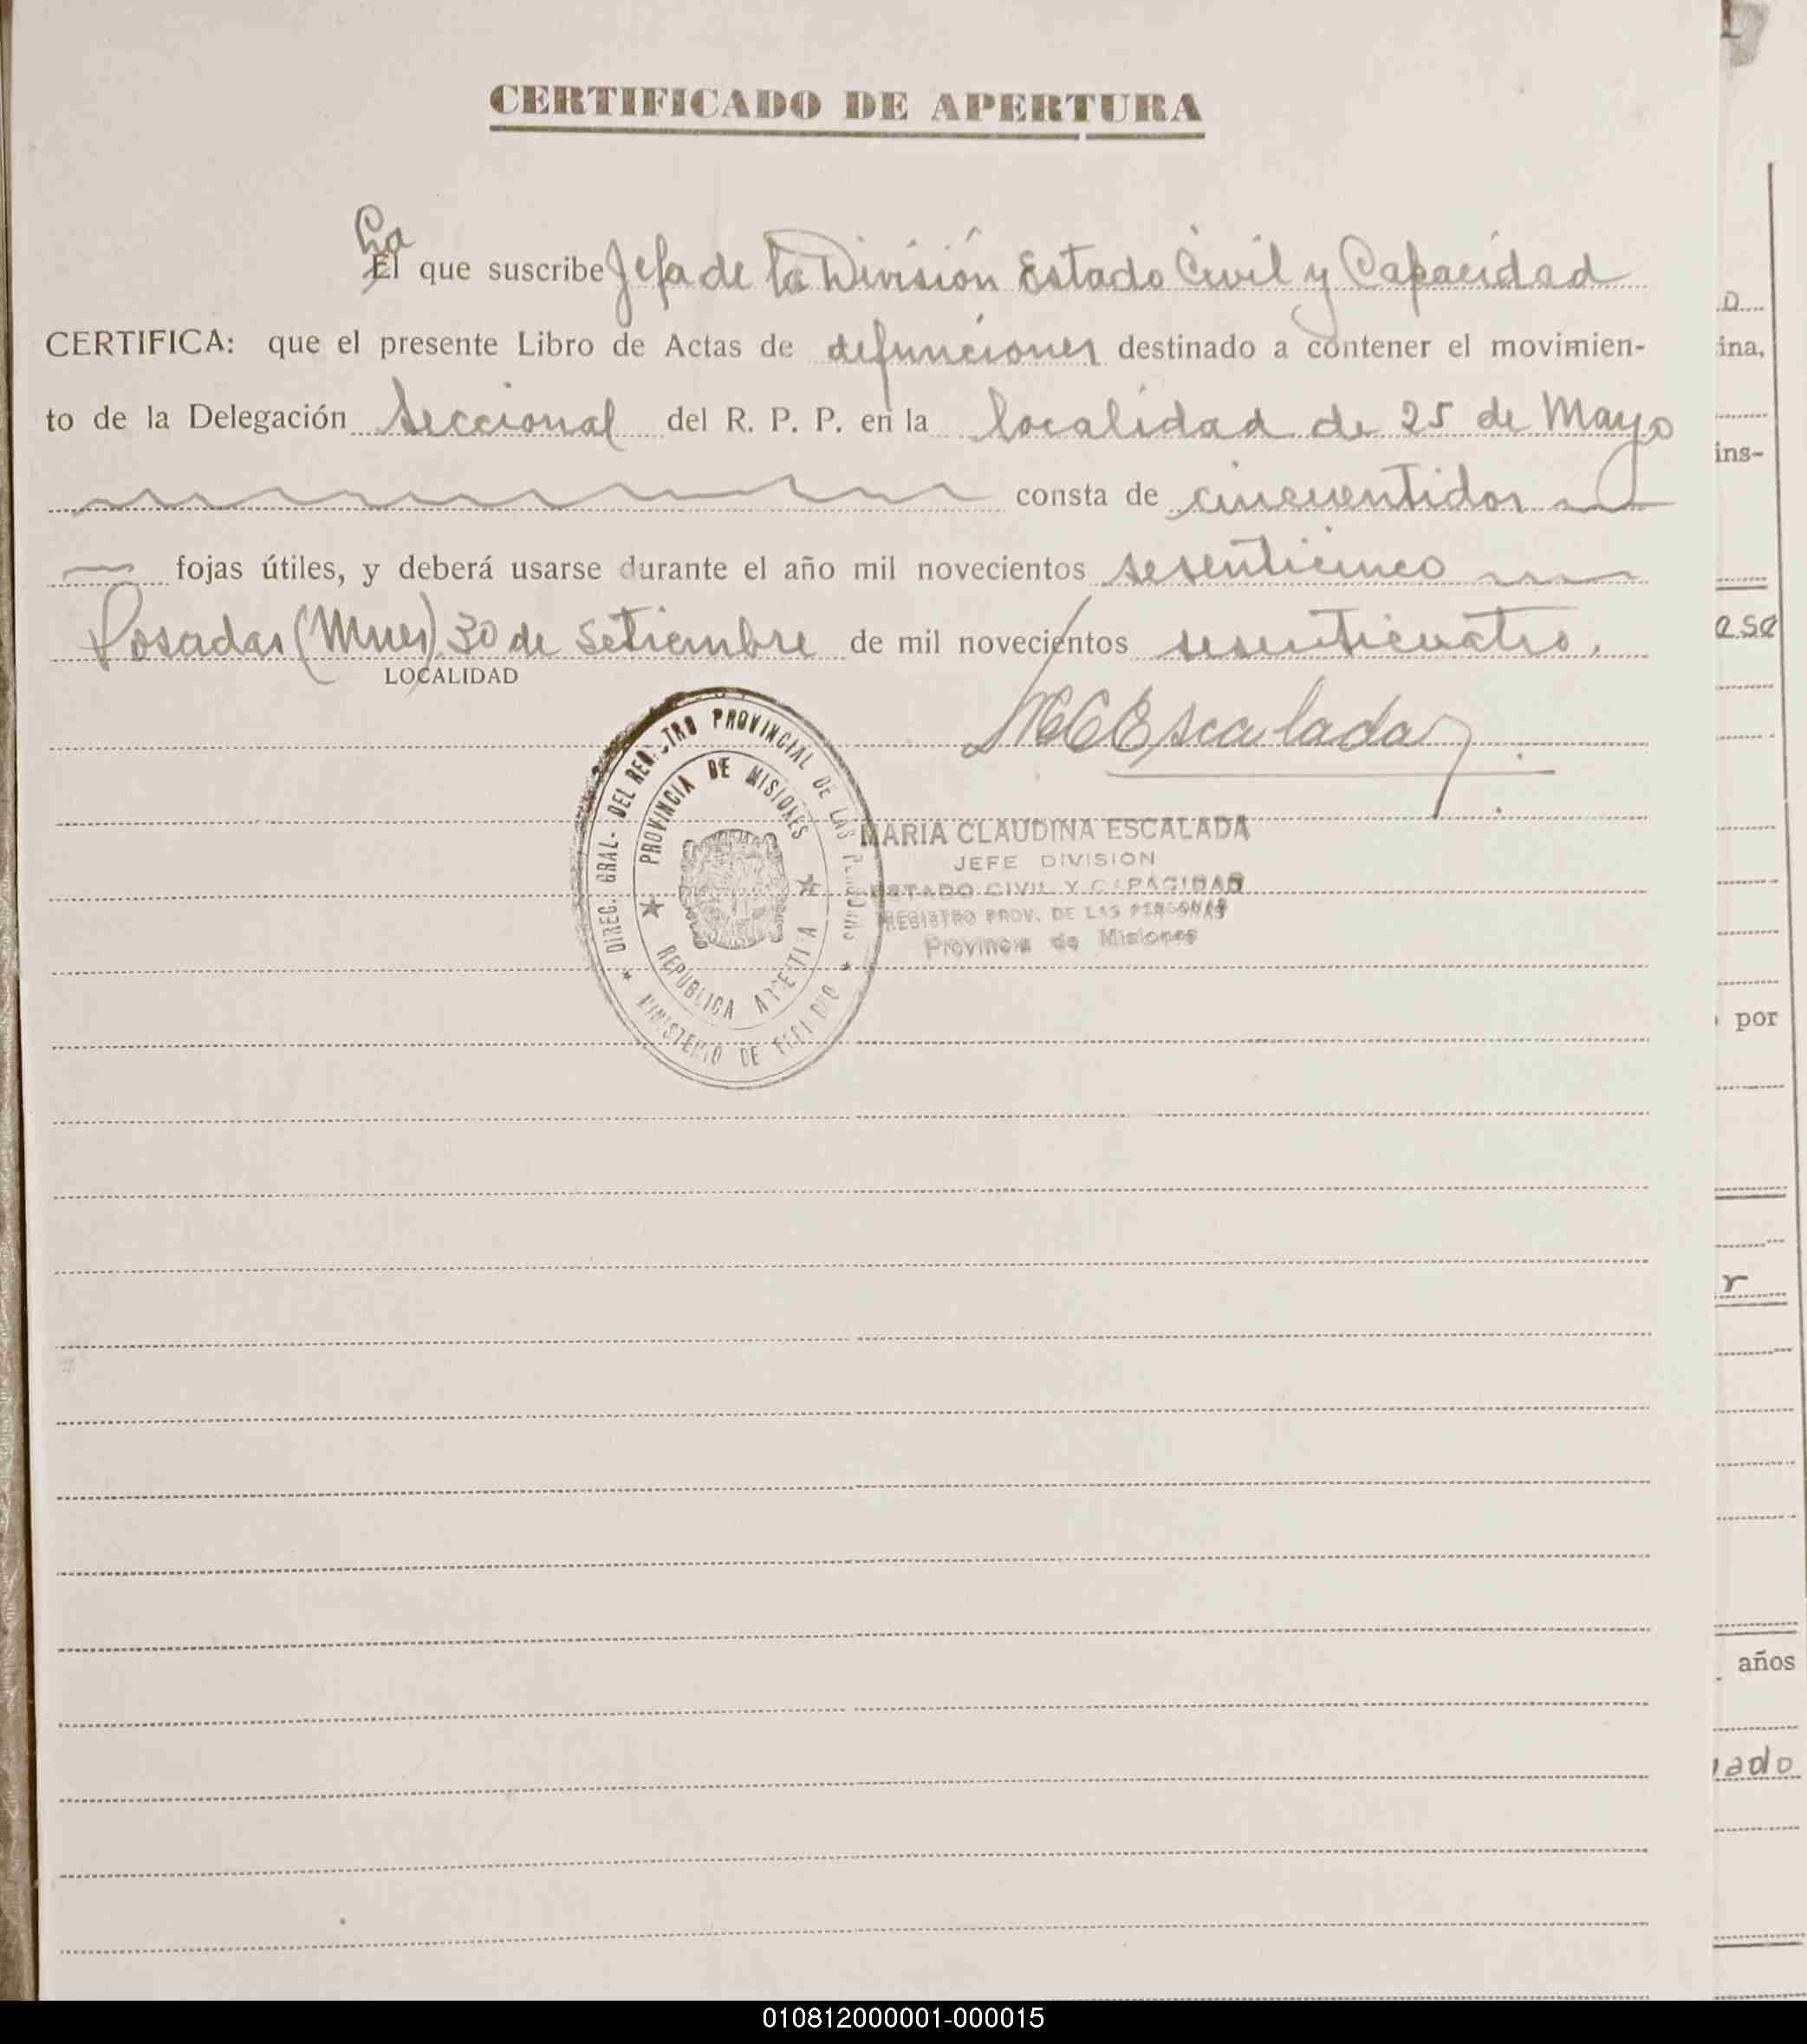 CERTIFICADO DE APERTURA
La
El que suscribe Jefa de la División Estado Civil y Capacidad
CERTIFICA: que el presente Libro de Actas de defunciones destinado a contener el movimien-
to de la Delegación Seccional del R. P. P. en la localidad de 25 de Mayo
consta de cincuentidos
fojas útiles, y deberá usarse durante el año mil novecientos sesenticinco
Posadas (Mnes) 30 de Setiembre de mil novecientos sesenticuatro.
LOCALIDAD
MCEscalada
DIREC. GRAL. DEL REGISTRO PROVINCIAL DE LAS PERSONAS
PROVINCIA DE MISIONES
REPUBLICA ARGENTINA
MINISTERIO DE GOBIERNO
MARIA CLAUDINA ESCALADA
JEFE DIVISION
ESTADO CIVIL Y CAPACIDAD
REGISTRO PROV. DE LAS PERSONAS
Provincia de Misiones
ina,
ins-
por
r
años
010812000001-000015